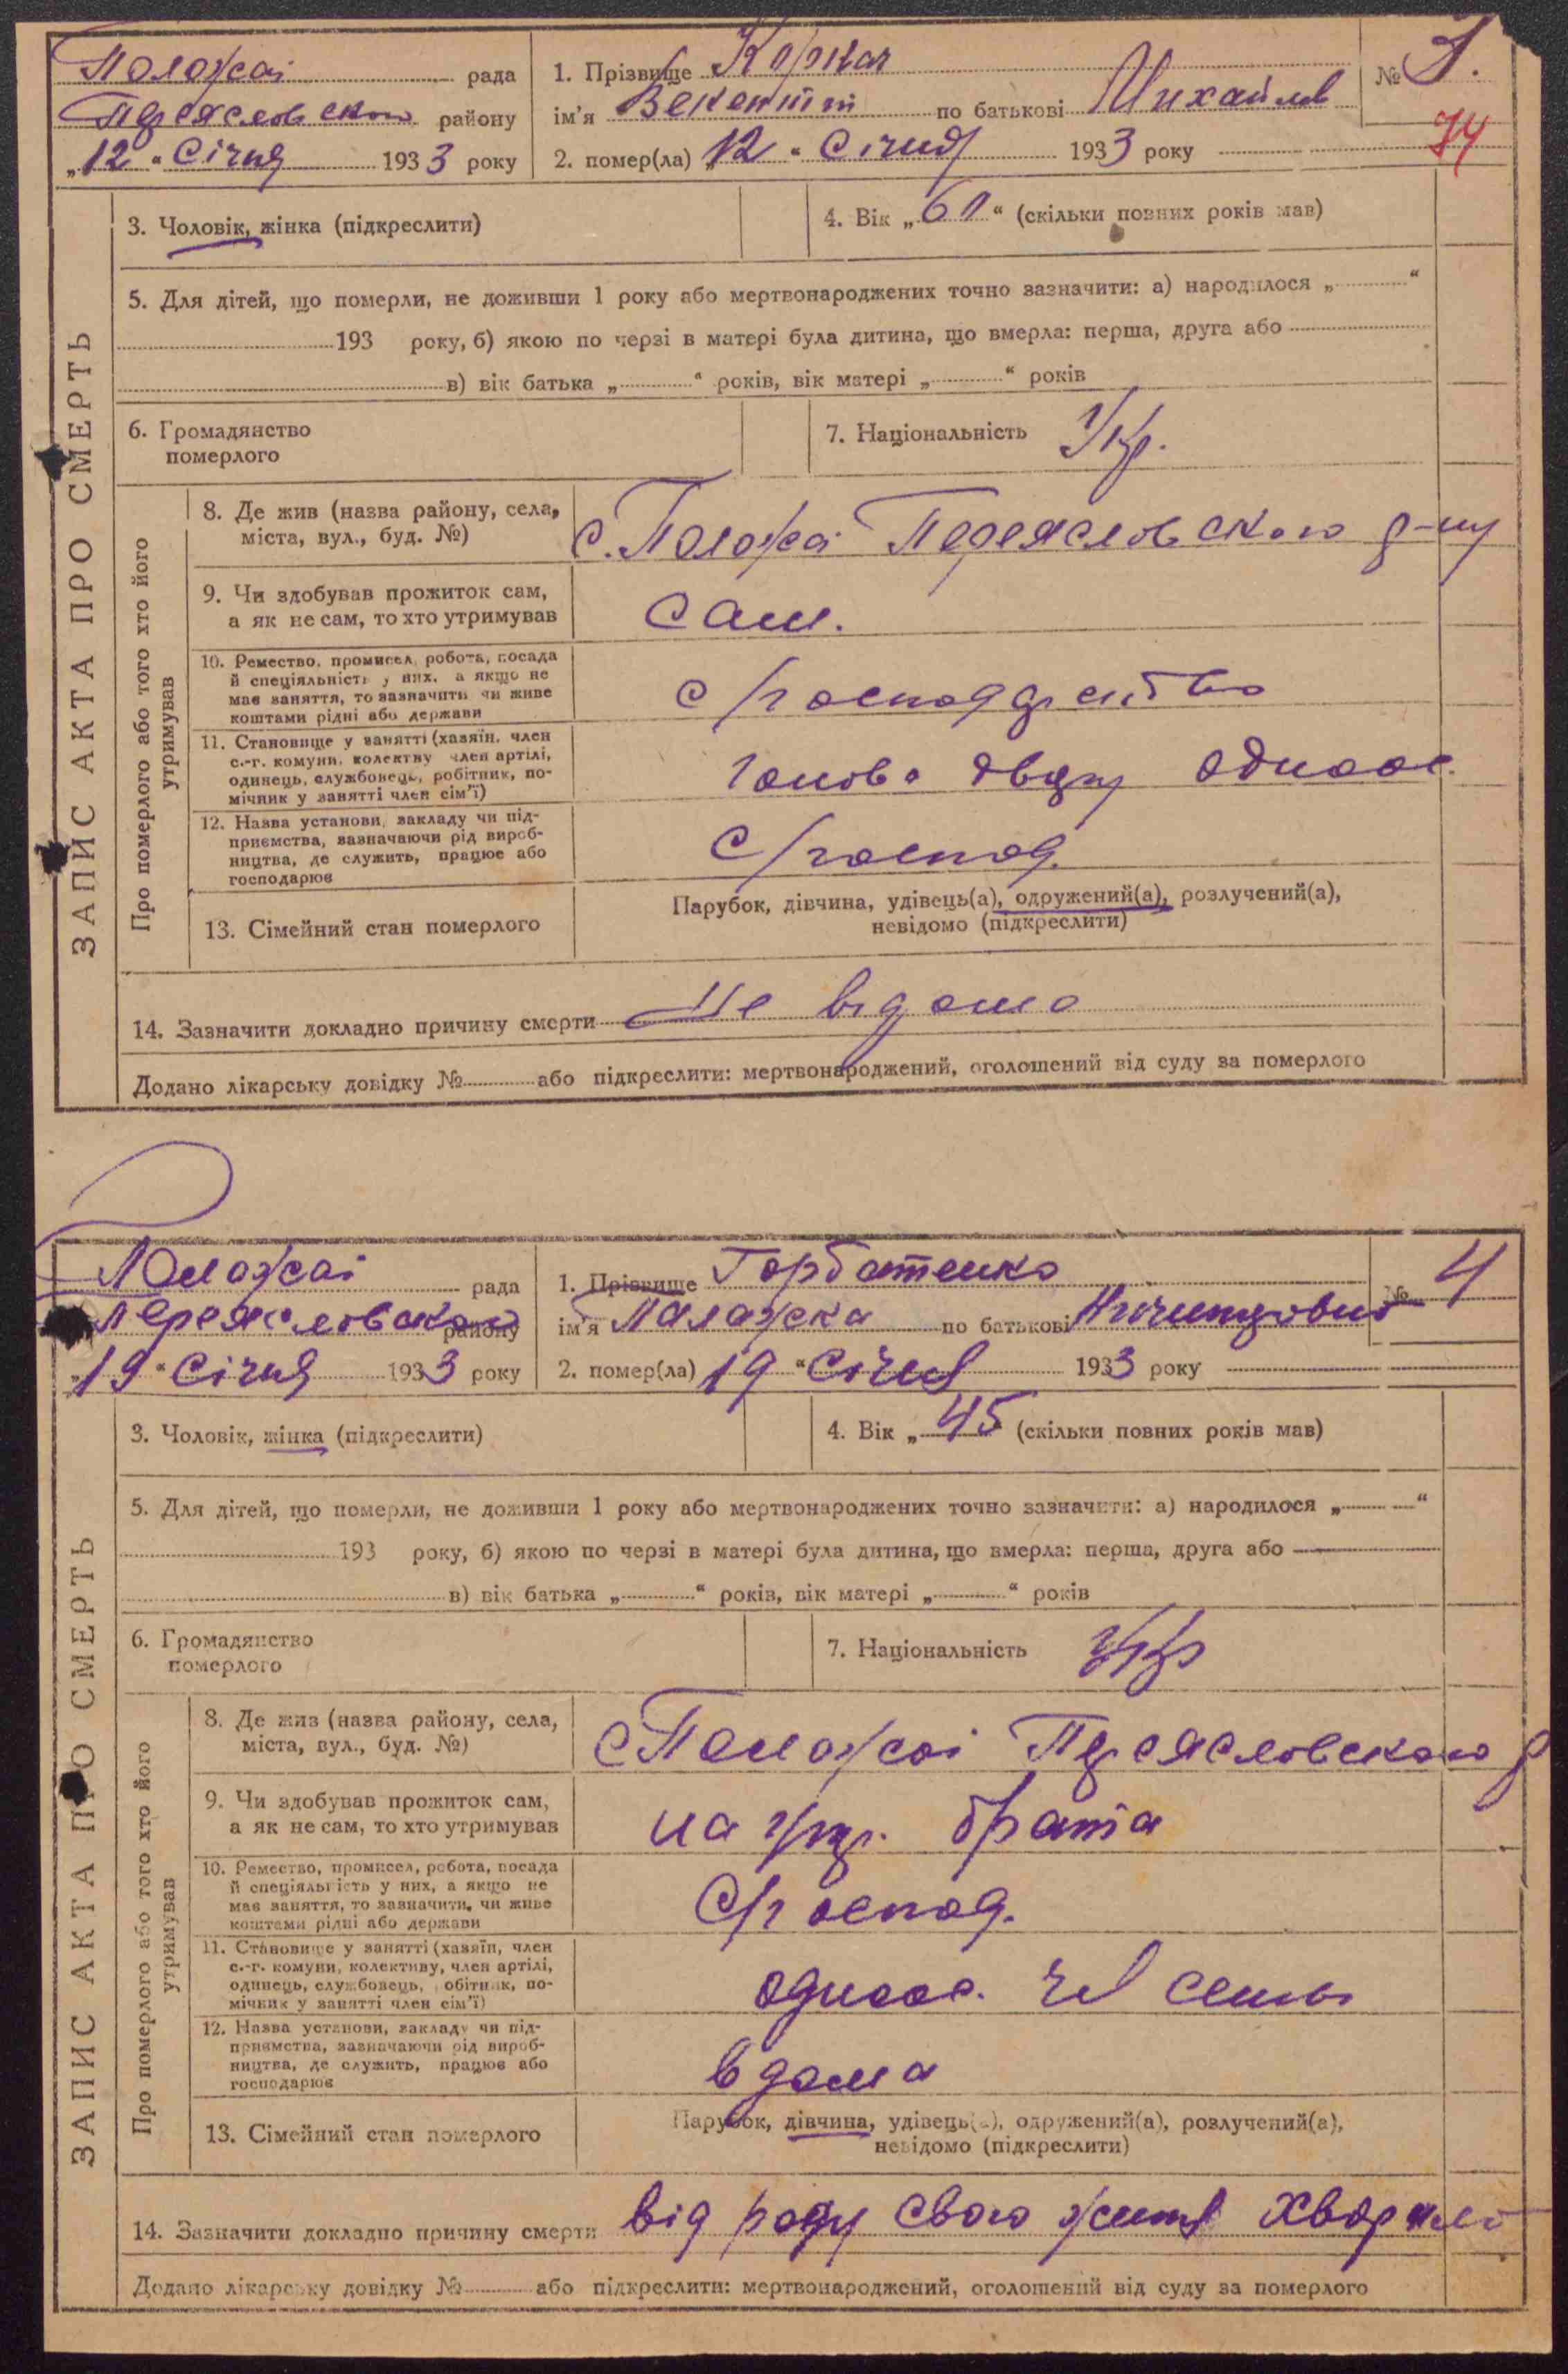 Положаі рада
Переясловского району
„12“ Січня 1933 року
1. Прізвище Коркач
ім'я Векентій по батькові Михайлов
2. помер(ла) „12“ Січня 1933 року
№ 3.
74
ЗАПИС АКТА ПРО СМЕРТЬ
3. Чоловік, жінка (підкреслити)
4. Вік „60“ (скільки повних років мав)
5. Для дітей, що померли, не доживши 1 року або мертвонароджених точно зазначити: а) народилося „ “
193 року, б) якою по черзі в матері була дитина, що вмерла: перша, друга або
в) вік батька „ “ років, вік матері „ “ років
6. Громадянство
померлого
7. Національність Укр.
Про померлого або того хто його
утримував
8. Де жив (назва району, села,
міста, вул., буд. №)
с. Положаі Переясловского р-ну
9. Чи здобував прожиток сам,
а як не сам, то хто утримував
сам.
10. Ремество, промисел, робота, посада
й спеціяльність у них, а якщо не
має заняття, то зазначити чи живе
коштами рідні або держави
с/господарство
11. Становище у занятті (хазяїн, член
с.-г. комуни, колективу член артілі,
одинець, службовець, робітник, по-
мічник у занятті член сім'ї)
голова двору одноос.
12. Назва установи, закладу чи під-
приємства, зазначаючи рід вироб-
ництва, де служить, працює або
господарює
С/господ.
13. Сімейний стан померлого
Парубок, дівчина, удівець(а), одружений(а), розлучений(а),
невідомо (підкреслити)
14. Зазначити докладно причину смерти не відомо
Додано лікарську довідку № або підкреслити: мертвонароджений, оголошений від суду за померлого
Положаі рада
Переясловского району
„19“ Січня 1933 року
1. Прізвище Горбатенко
ім'я Палажка по батькові
2. помер(ла) 19 “ Січня 1933 року
№ 4
ЗАПИС АКТА ПРО СМЕРТЬ
3. Чоловік, жінка (підкреслити)
4. Вік „45“ (скільки повних років мав)
5. Для дітей, що померли, не доживши 1 року або мертвонароджених точно зазначити: а) народилося „ “
193 року, б) якою по черзі в матері була дитина, що вмерла: перша, друга або
в) вік батька „ “ років, вік матері „ “ років
6. Громадянство
померлого
7. Національність Укр
Про померлого або того хто його
утримував
8. Де жив (назва району, села,
міста, вул., буд. №)
с Положаі Переясловского р
9. Чи здобував прожиток сам,
а як не сам, то хто утримував
на утр. брата
10. Ремество, промисел, робота, посада
й спеціяльність у них, а якщо не
має заняття, то зазначити, чи живе
коштами рідні або держави
С/господ.
11. Становище у занятті (хазяїн, член
с.-г. комуни, колективу, член артілі,
одинець, службовець, робітник, по-
мічник у занятті член сім'ї)
одноос. чл семьи
12. Назва установи, закладу чи під-
приємства, зазначаючи рід вироб-
ництва, де служить, працює або
господарює
вдома
13. Сімейний стан померлого
Парубок, дівчина, удівець(а), одружений(а), розлучений(а),
невідомо (підкреслити)
14. Зазначити докладно причину смерти від роду свого життя хворіла
Додано лікарську довідку № або підкреслити: мертвонароджений, оголошений від суду за померлого